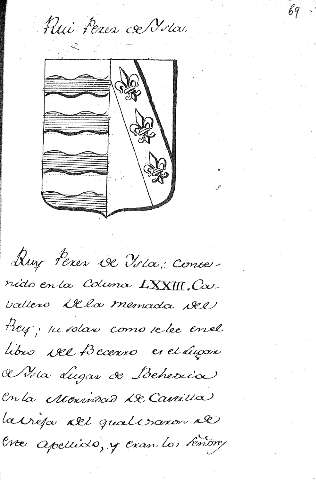 69
Rui Perez de Ysla.
Ruy Perez de Ysla; Conte-
nido en la Coluna LXXIII. Ca-
vallero de la mesnada del
Rey; su solar como se lee en el
libro del Becerro es el Lugar
de Ysla Lugar de Behetria
en la Merindad de Castilla
la vieja del qual usaron de
este Apellido, y eran los Señores